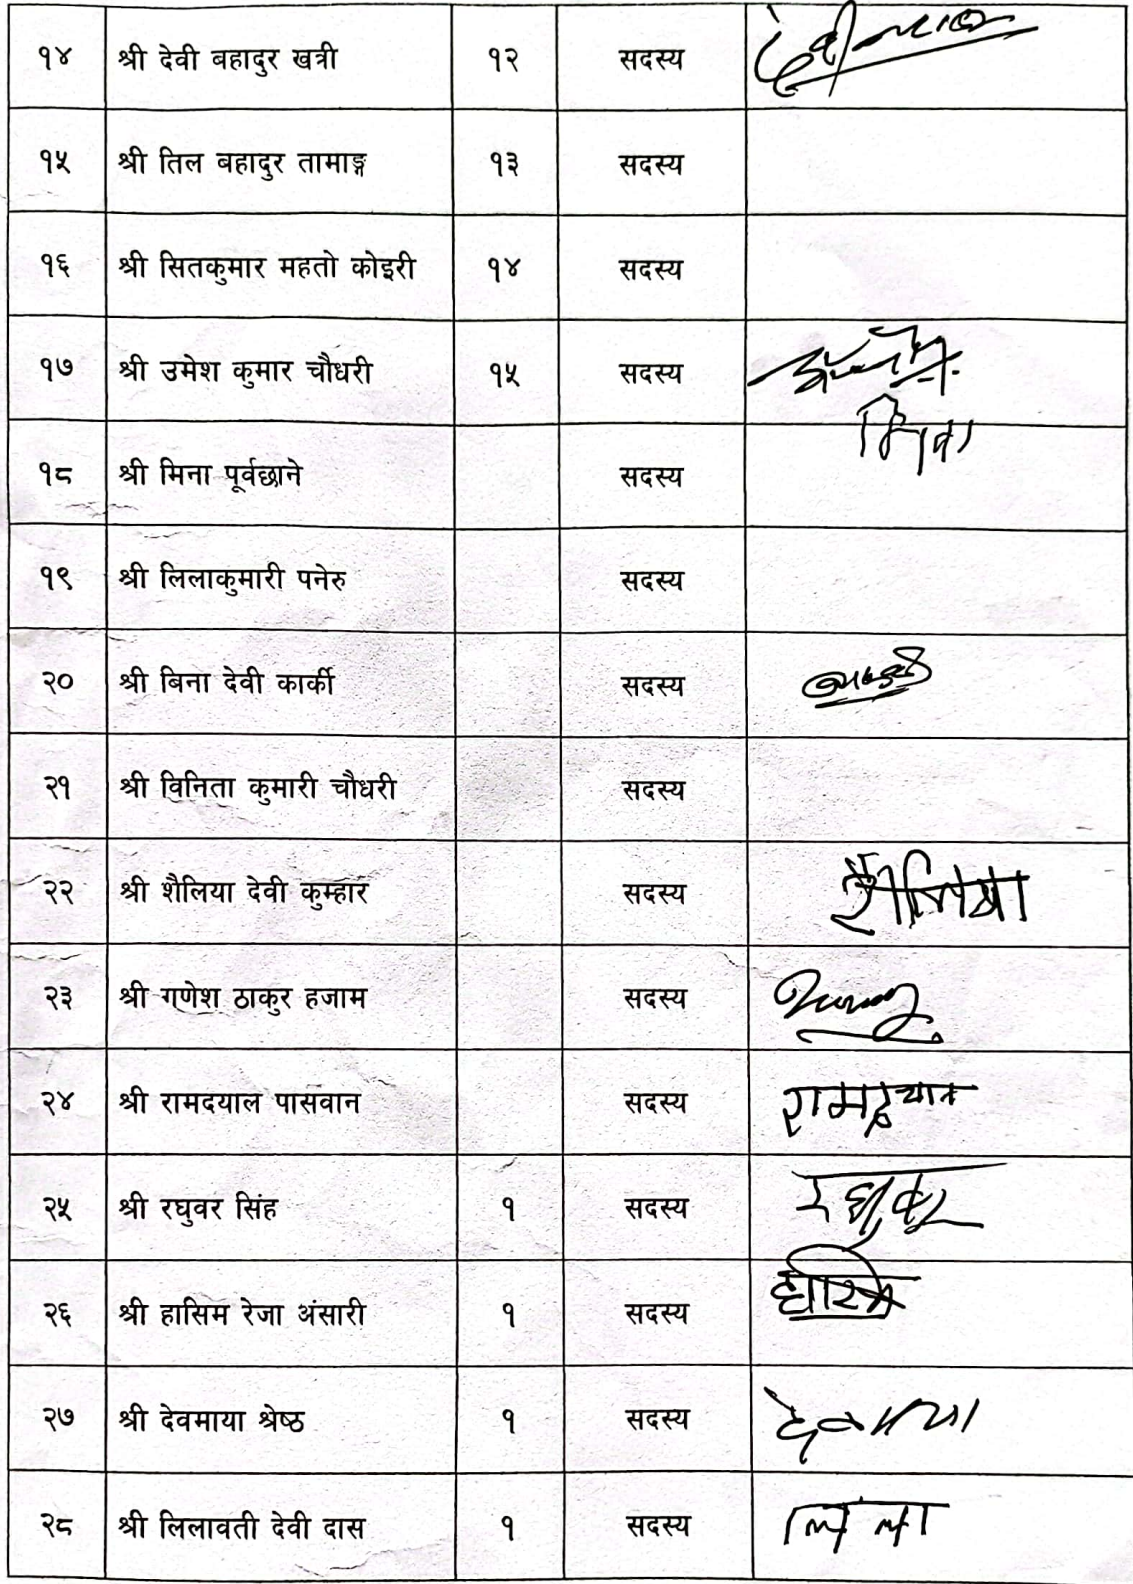 १४ श्री देवी बहादुर खत्री १२ सदस्य
१५ श्री तिल बहादुर तामाङ्ग १३ सदस्य
१६ श्री सितकुमार महतो कोइरी १४ सदस्य
१७ श्री उमेश कुमार चौधरी १५ सदस्य
१८ श्री मिना पूर्वछाने सदस्य
१९ श्री लिलाकुमारी पनेरु सदस्य
२० श्री बिना देवी कार्की सदस्य
२१ श्री विनिता कुमारी चौधरी सदस्य
२२ श्री शैलिया देवी कुम्हार सदस्य
२३ श्री गणेश ठाकुर हजाम सदस्य
२४ श्री रामदयाल पासवान सदस्य
२५ श्री रघुवर सिंह १ सदस्य
२६ श्री हासिम रेजा अंसारी १ सदस्य
२७ श्री देवमाया श्रेष्ठ १ सदस्य देवमाया
२८ श्री लिलावती देवी दास १ सदस्य